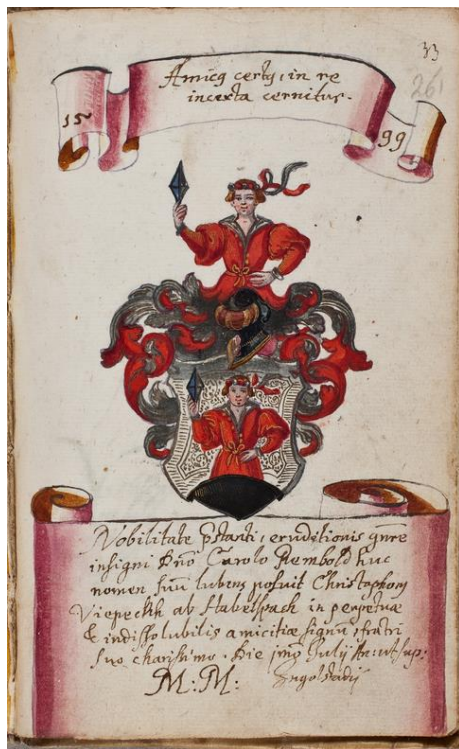 33
261
Amicꝰ certꝰ, in re
incerta cernitur.
15
99
Nobilitate p̃stanti, eruditionis gñre
insigni Dño Carolo Rembold huc
nomen suũ lubens posuit Christophorꝰ
Viepeckh ab Habelspach in perpetuæ
& indissolubilis amicitiæ signum, fratri
suo charissimo. Die Julij
M: M: Ingolstadij